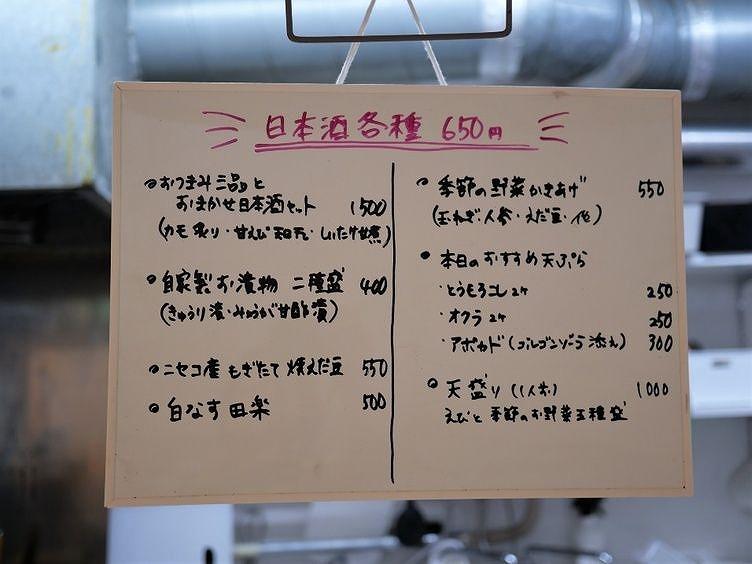 日本酒各種 650円
・おつまみ三品と
おまかせ日本酒セット 1500
(カモ炙り・甘えび和え・しいたけ煮)
・自家製お漬物 二種盛 400
(きゅうり漬・みょうが甘酢漬)
・ニセコ産もぎたて焼えだ豆 550
・白なす田楽 500
・季節の野菜かきあげ 550
(玉ねぎ・人参・えだ豆・他)
・本日のおすすめ天ぷら
・とうもろコシ2ケ 250
・オクラ2ケ 250
・アボカド(ゴルゴンゾーラ添え) 300
・天盛り(1人前) 1000
えびと季節のお野菜五種盛